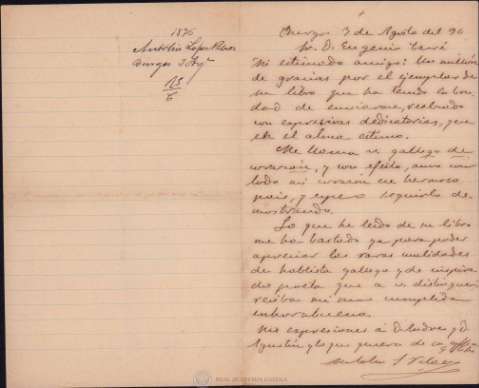 1896
Antolín López Peláez
Burgos 3 Agº
15
6
Burgos 3 de Agosto del 96
Sr. D. Eugenio Carré
Mi estimado amigo: Un millón
de gracias por el ejemplar de
su libro que ha tenido la bon
dad de enviarme, realzado
con expresivas dedicatorias, que
en el alma estimo.
Me llama V. gallego de
corazón, y con efecto, amo con
todo mi corazón ese hermoso
país, y espero seguirlo de-
mostrando.
Lo que he leído de su libro
me ha bastado ya para poder
apreciar las raras cualidades
de hablista gallego y de inspira
do poeta que a V. distinguen
reciba mi más cumplida
enhorabuena.
Mis expresiones a
Agustín, y lo que quiera de su affmo
Antolín L Peláez
REAL ACADEMIA GALEGA